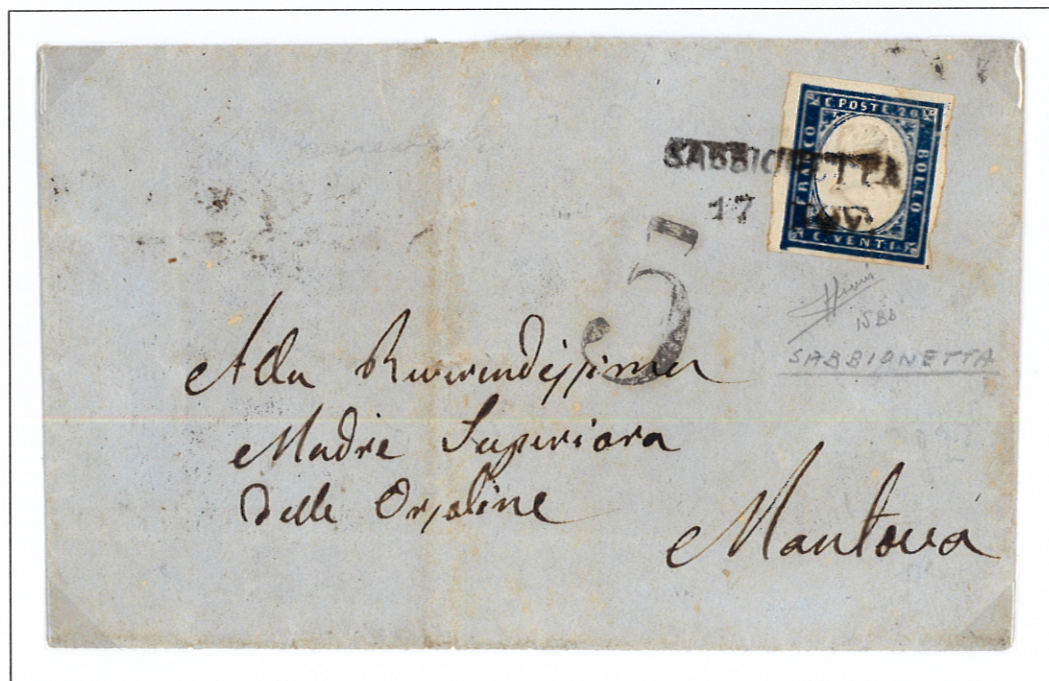 C. POSTE 20
FRANCO
BOLLO
C. VENTI
SABBIONETTA
17
5
1586
SABBIONETTA
Alla Reverindissima
Madre Superiora
delle Orsoline
Mantova